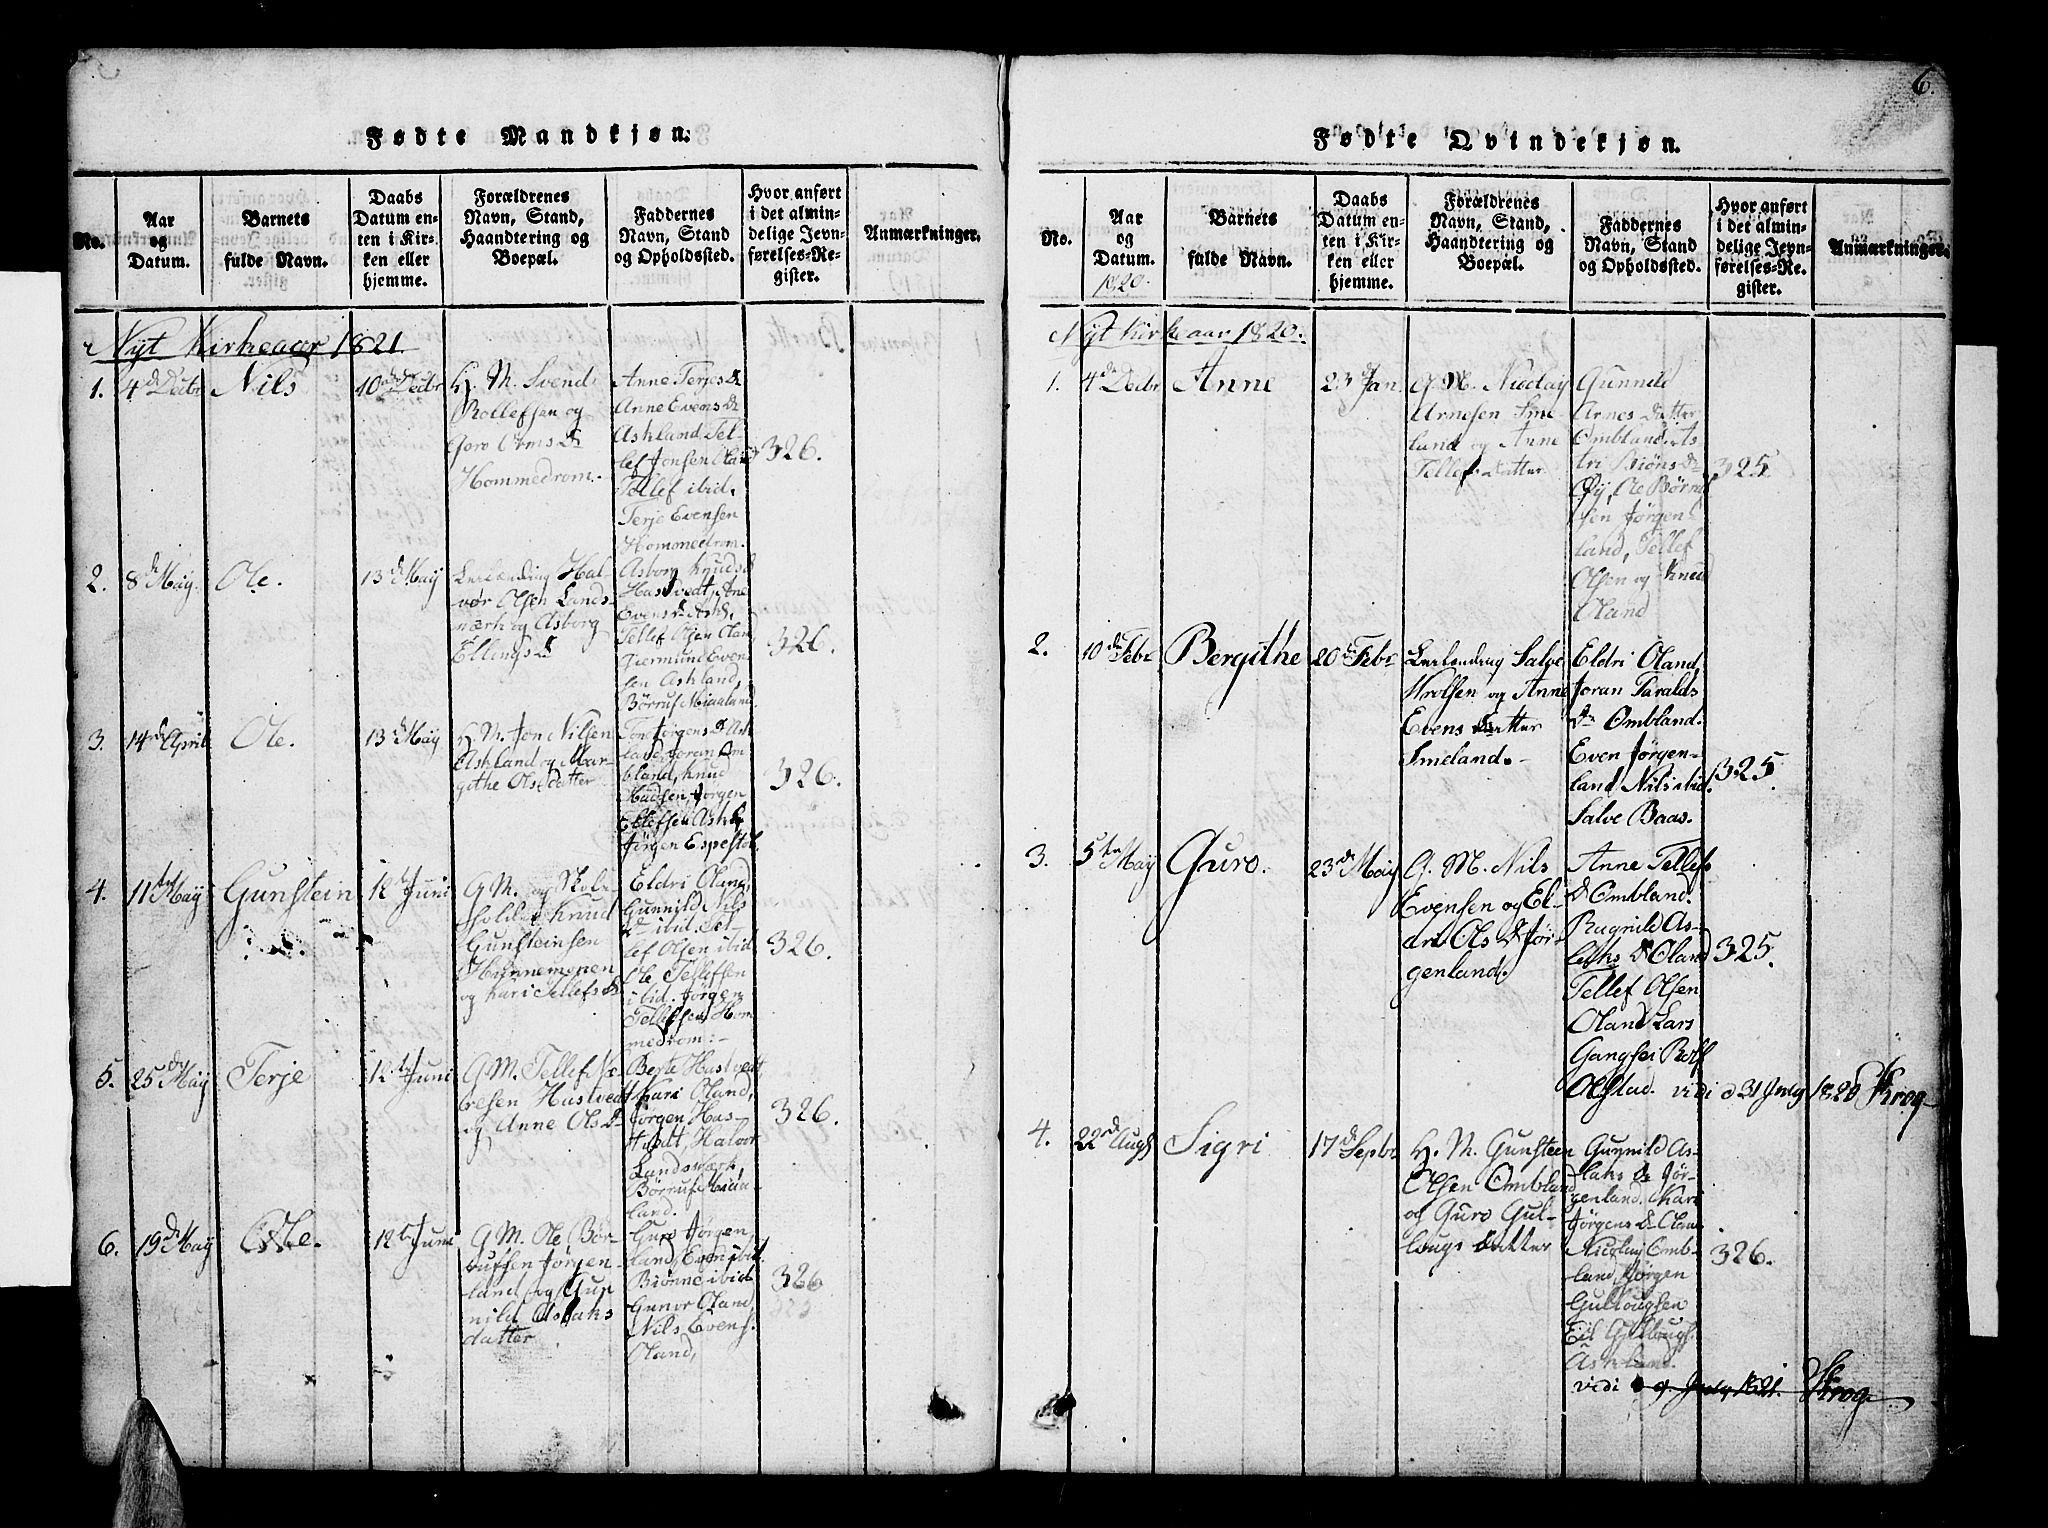 6.
Fødte Mandkjøn.
No.
Aar
og
Datum.
Barnets
fulde Navn.
Daabs
Datum en-
ten i Kir-
ken eller
hjemme.
Forældrenes
Navn, Stand,
Haandtering og
Boepæl.
Faddernes
Navn, Stand
og Opholdssted.
Hvor anført
i det almin-
delige Jevn-
førelses-Re-
gister.
Anmærkninger.
Nyt Kirkeaar 1821.
1.
4de Decbr
Nils
10de Decbr
H. M. Svend
Rollefsen og
Goro Orms D
Hommedrom.
Anne Terjes D
Anne Evens D
Ashland Tel-
lef Jonsen Oland
Tellef ibid.
Terje Evensen
Hommedrom.
326.
2.
8de May.
Ole.
13de May
Lerlænding Hal-
vor Olsen Lands-
mærk og Asborg
Ellings D
Asborg Knuds D
Hustvedt, Ane
Evens D Ashl.
Tellef Olsen Oland
Giermund Even
sen Ashland,
Børruf Miaaland.
326.
3.
14de April
Ole.
13de May
H. M. Jon Nilsen
Ashland og Mar-
githe Ols datter
Tone Jørgens D Ash
land Joran Om
bland, Knud
Madsen, Jørgen
Ellefsen Ashl.
Jørgen Espestøl.
326.
4.
11te May
Gunstein
12te Juni
G. M. og Skole
holder Knud
Gunsteinsen
Hunnemonen
og Kari Tellefs D
Eldri Oland,
Gunnild Nils
D ibid. Tel-
lef Olsen ibid
Ole Tellefsen
ibid. Jørgen
Tellefsen Hom
medrom:-
326.
5.
25de May
Terje
12te Juni
G. M. Tellef
Hustvedt
og Anne Ols D
Berte Hustvedt
Kari Oland,
Jørgen Hus-
tvedt, Halvor
Landsmærk,
Børruf Miaa-
land.
326.
6.
19de May
Ole.
12te Juni
G. M. Ole Bør-
rufsen Jørgen-
land og Gun
nild Aslaks
datter
Guro Jørgen
land, Even ibid.
Biønne ibid
Gunor Oland,
Nils Evens.
Oland,
326
Fødte Qvindekjøn.
No.
Aar
og
Datum.
1820.
Barnets
fulde Navn.
Daabs
Datum en-
ten i Kir-
ken eller
hjemme.
Forældrenes
Navn, Stand,
Haandtering og
Boepæl.
Faddernes
Navn, Stand
og Opholdssted.
Hvor anført
i det almin-
delige Jevn-
førelses-Re-
gister.
Anmærkninger.
Nyt Kirkeaar 1820.
1.
4de Decbr
Anne
23de Jan.
G. M. Nicolay
Arnesen Sme-
land og Anne
Tellefs datter
Gunnild
Arnes datter
Ombland, As
tri Biøns D
Øy, Ole Børruf
sen Jørgen
land, Tellef
Olsen og Knud
Oland
325
2.
10de Febr
Bergithe
20de Febr
Lerlending Salve
Wrolsen og Anne
Evens datter
Smeland.-
Eldri Oland,
Joran Taralds
D Ombland.
Even Jørgen-
land Nils ibid.
Salve Baas.
325.
3.
5te May
Guro.
23de May
G. M. Nils
Evensen og El-
dri Ols D Jør-
genland.
Anne Tellefs
D Ombland.
Ragnild As-
laks D Oland
Tellef Olsen
Oland Lars
Gangsei Rolf
Olstad.
325.
vidi d 31 July 1820 Krog
4.
22de Augs
Sigri
17de Septbr
H. M. Gunsteen
Olsen Ombland
og Guro Gul-
lougs datter
Gunnild As-
laks D Jør-
genland. Kari
Jørgens D Oland
Nicolay Omb-
land, Jørgen
Gullougsen
Eil Gullougs.
Ashland.
326.
vidi 9 July 1821. Krog